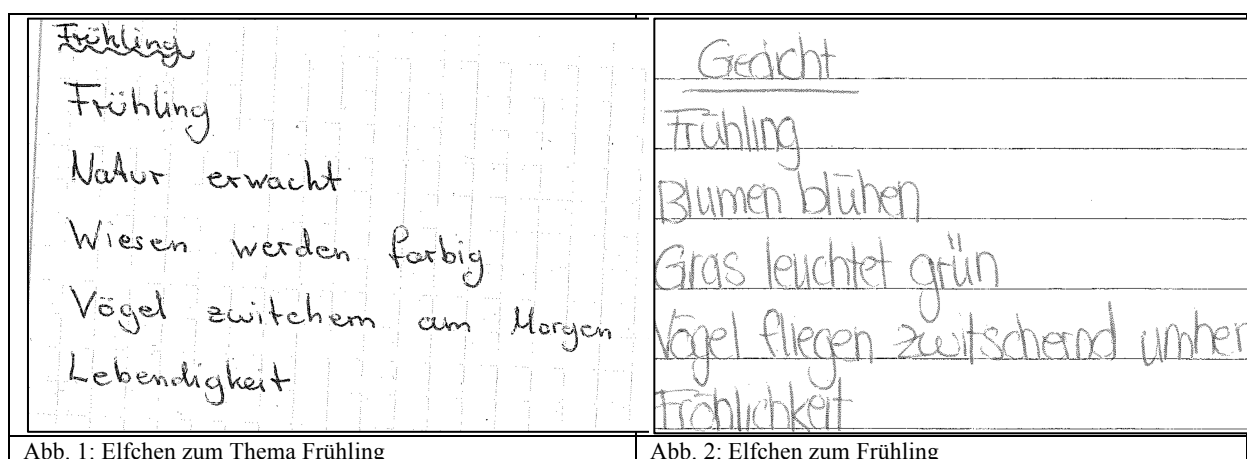 Frühling
Frühling
Natur erwacht
Wiesen werden farbig
Vögel zwitchern am Morgen
Lebendigkeit
Abb. 1: Elfchen zum Thema Frühling
Gedicht
Frühling
Blumen blühen
Gras leuchtet grün
Vögel fliegen zwitschernd umher
Fröhlichkeit
Abb. 2: Elfchen zum Frühling